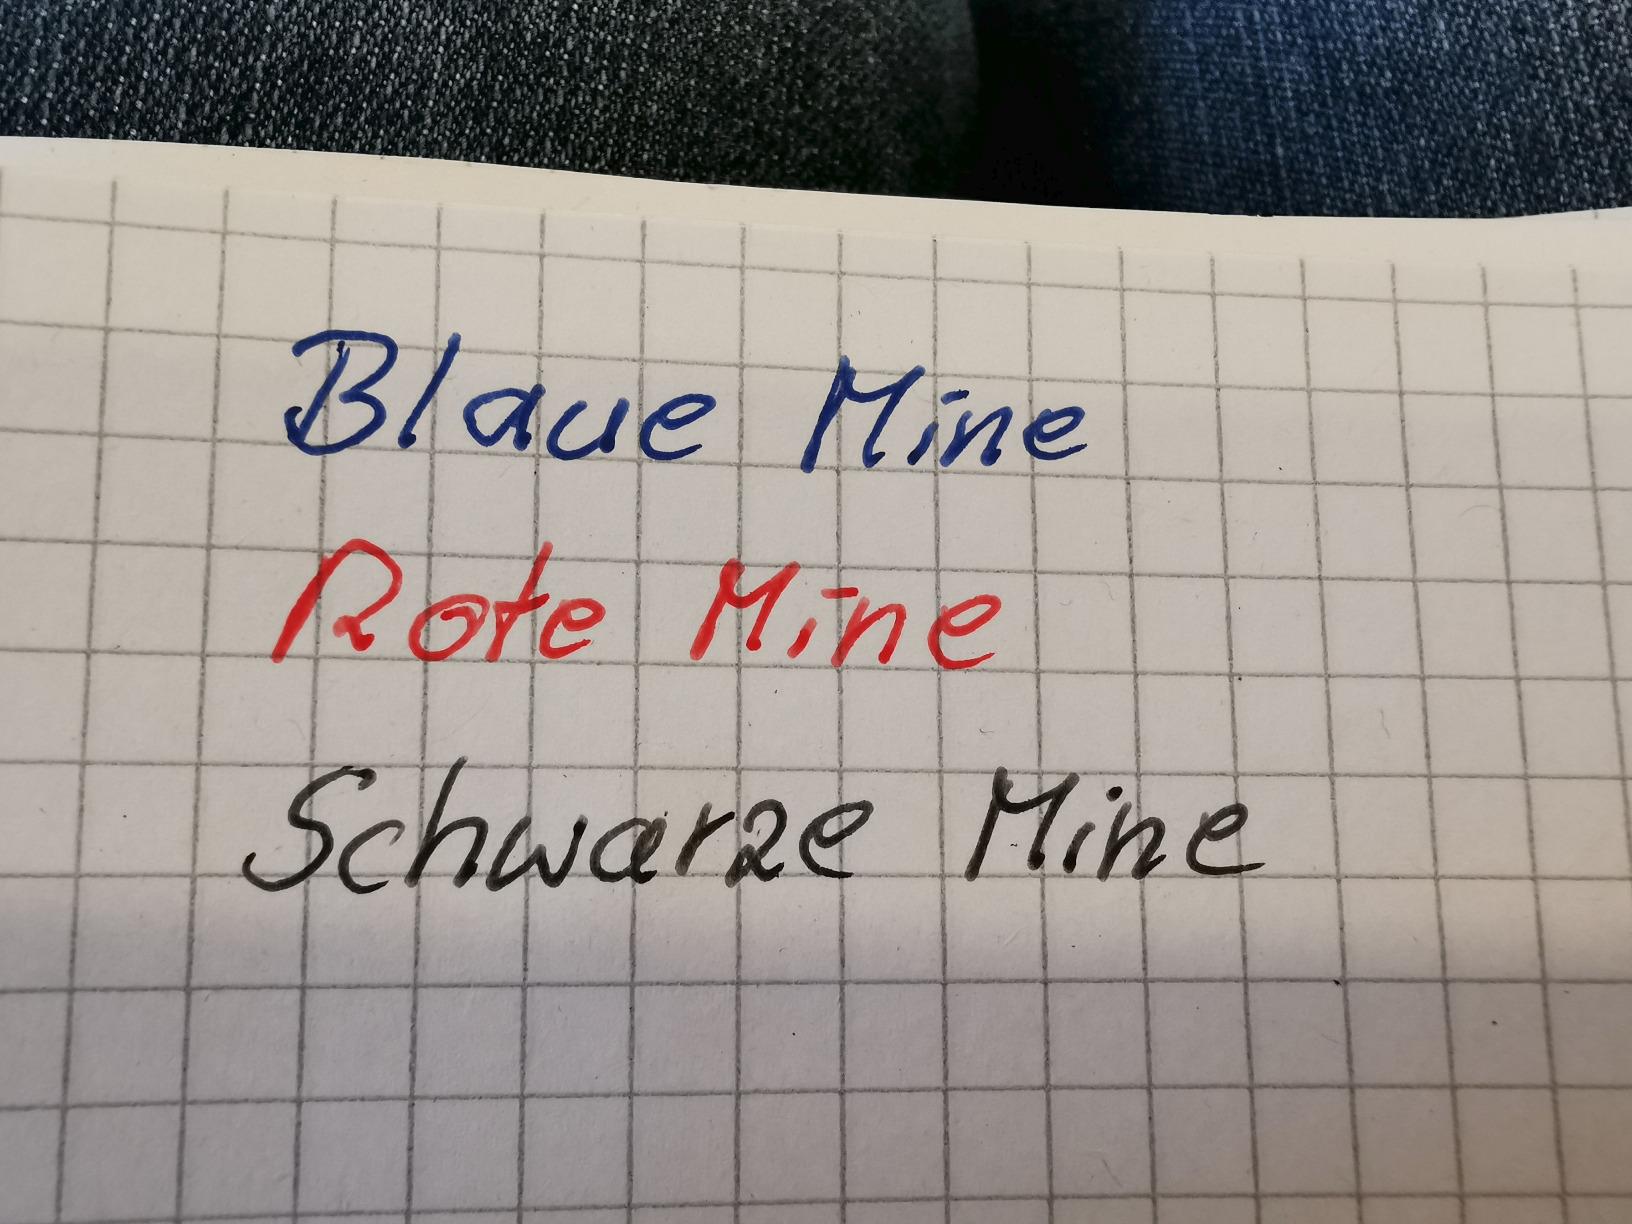 Blaue Mine
Rote Mine
Schwarze Mine